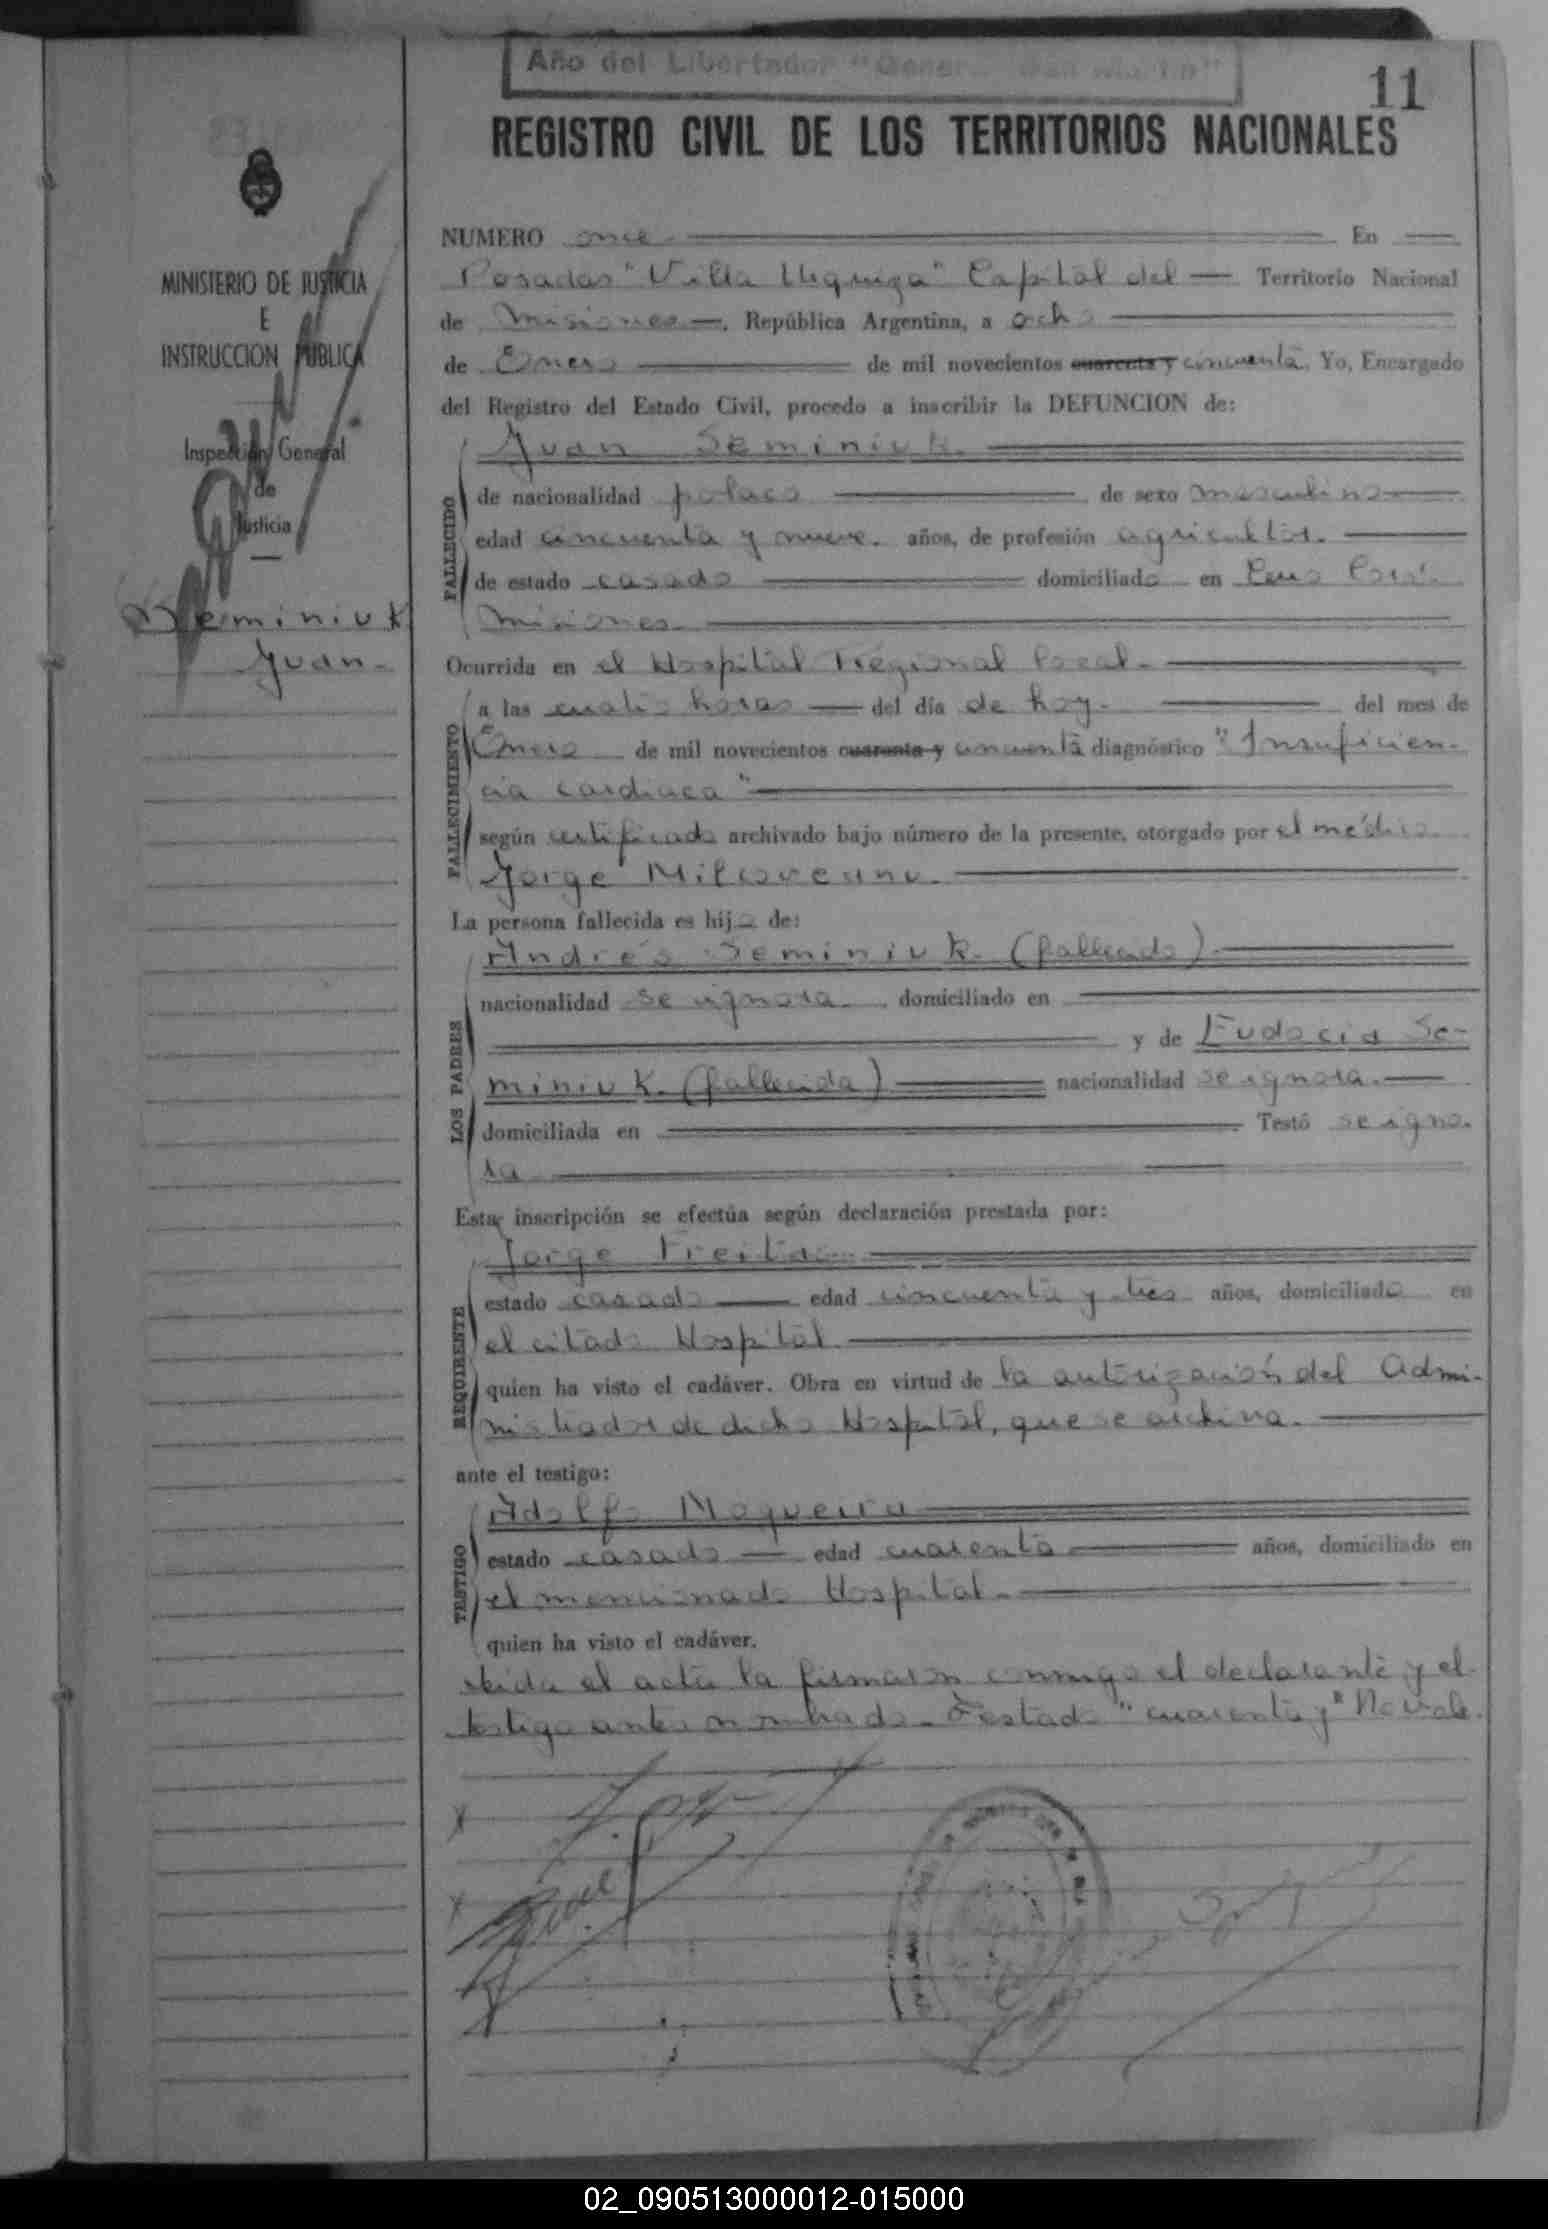 Año del Libertador "General San Martín"
11
REGISTRO CIVIL DE LOS TERRITORIOS NACIONALES
MINISTERIO DE JUSTICIA
E
INSTRUCCION PUBLICA
Inspección General
de
Justicia
Seminiuk
Juan-
NUMERO once En
Posadas "Villa Urquiza" Capital del Territorio Nacional
de Misiones, República Argentina, a ocho
de Enero de mil novecientos cuarenta y cincuenta, Yo, Encargado
del Registro del Estado Civil, procedo a inscribir la DEFUNCION de:
FALLECIDO
Juan Seminiuk.
de nacionalidad polaco de sexo masculino
edad cincuenta y nueve. años, de profesión agricultor.
de estado casado domiciliado en Cerro Corá.
Misiones.
Ocurrida en el Hospital Regional local.
FALLECIMIENTO
a las cuatro horas del día de hoy. del mes de
Enero de mil novecientos cuarenta y cincuenta diagnóstico "Insuficien-
cia cardiaca"
según certificado archivado bajo número de la presente, otorgado por el médico
Jorge Milcoveanu.
La persona fallecida es hijo de:
LOS PADRES
Andrés Seminiuk. (fallecido)
nacionalidad se ignora domiciliado en
y de Eudocia Se-
miniuk. (fallecida) nacionalidad se ignora.
domiciliada en Testó se igno-
ra
Esta inscripción se efectúa según declaración prestada por:
REQUIRENTE
Jorge
estado casado edad cincuenta y tres años, domiciliado en
el citado Hospital
quien ha visto el cadáver. Obra en virtud de la autorización del Admi-
nistrador de dicho Hospital, que se archiva.
ante el testigo:
TESTIGO
Adolfo Moqueira
estado casado edad cuarenta años, domiciliado en
el mencionado Hospital.
quien ha visto el cadáver.
Leida el acta la firmaron conmigo el declarante y el
testigo antes nombrado. Testado "cuarenta y" No vale.
02_090513000012-015000